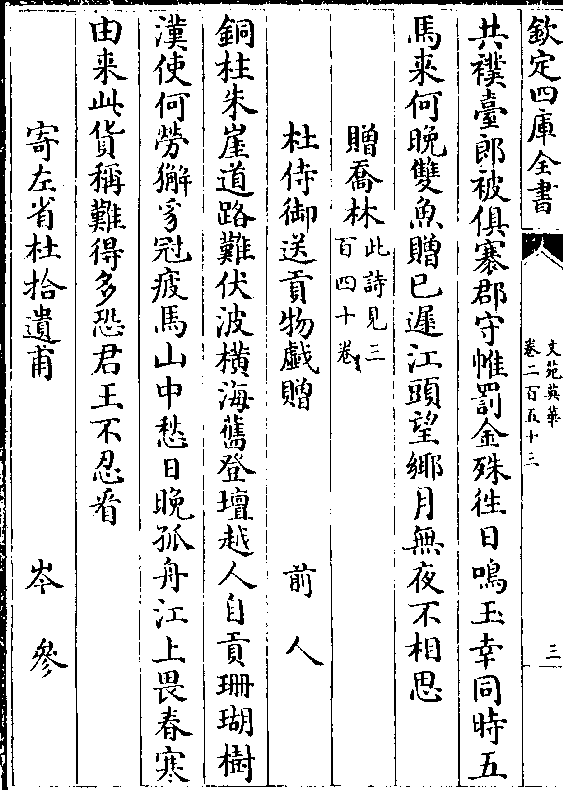 欽定四庫全書
文苑英華
卷二百五十三
三
共襆臺郎被俱褰郡守帷罰金殊徃日鳴玉幸同時五
馬來何晚雙魚贈已遲江頭望鄉月無夜不相思
贈喬林此詩見三
百四十卷
杜侍御送貢物戲贈 前人
銅柱朱崖道路難伏波横海舊登壇越人自貢珊瑚樹
漢使何勞獬豸冠疲馬山中愁日晚孤舟江上畏春寒
由来此貨稱難得多恐君王不忍看
寄左省杜拾遺甫 岑參